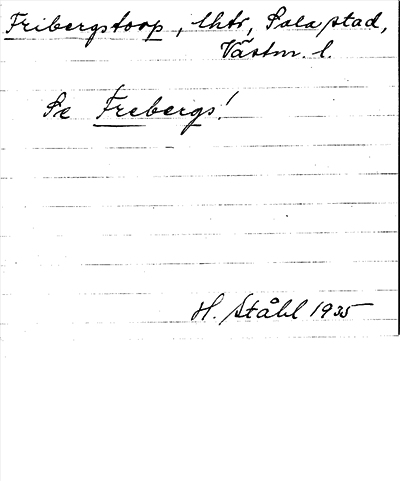 Fribergstorp, lht, Sala stad,
Västm. l.
Se Frebergs!
H. Ståhl 1935